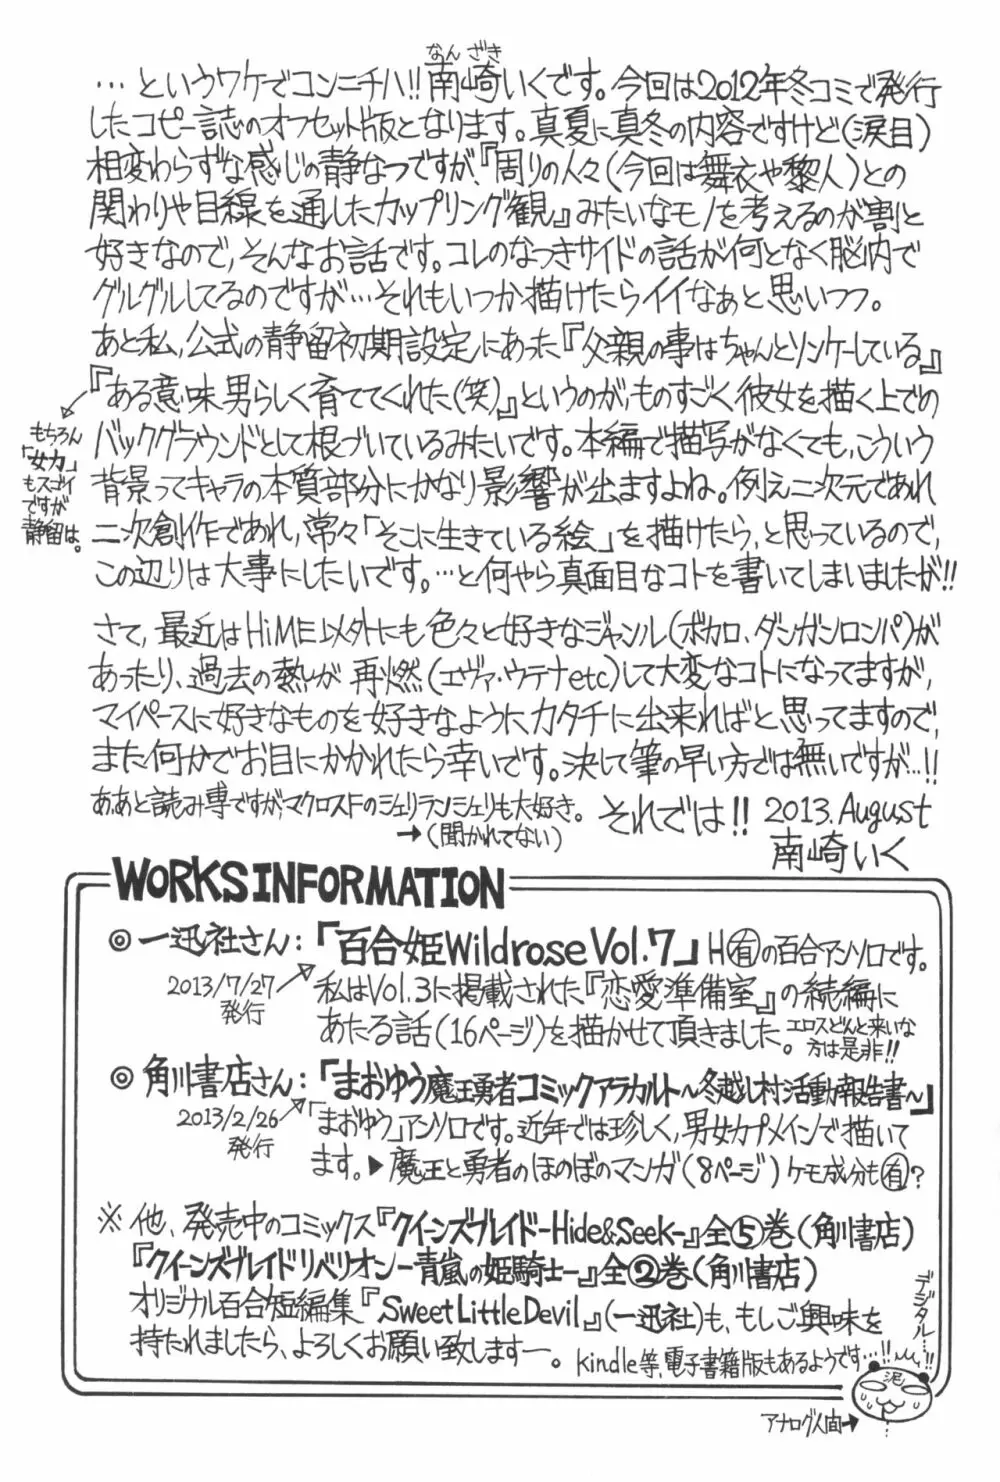 なん ざき
…というワケでコンニチハ!!南崎いくです。今回は2012年冬コミで発行
したコピー誌のオフセット版となります。真夏に真冬の内容ですけど(涙目)
相変わらずな感じの静なつですが、『周りの人々(今回は舞衣や黎人)との
関わりや目線を通したカップリング観』みたいなモノを考えるのが割と
好きなので、そんなお話です。コレのなつきサイドの話が何となく脳内で
グルグルしてるのですが…それもいつか描けたらイイなぁと思いつつ。
あと私、公式の静留初期設定にあった『父親の事はちゃんとソンケーしている』
『ある意味男らしく育ててくれた(笑)』というのが、ものすごく彼女を描く上での
バックグラウンドとして根づいているみたいです。本編で描写がなくても、こういう
背景ってキャラの本質部分にかなり影響が出ますよね。例え二次元であれ
二次創作であれ、常々「そこに生きている絵」を描けたら、と思っているので、
この辺りは大事にしたいです。…と何やら真面目なコトを書いてしまいましたが!!
もちろん
「女力」
もスゴイ
ですが
静留は。
さて、最近はHiME以外にも色々と好きなジャンル(ボカロ、ダンガンロンパ)が
あったり、過去の熱が再燃(エヴァ・ウテナetc)して大変なコトになってますが、
マイペースに好きなものを好きなようにカタチに出来ればと思ってますので、
また何かでお目にかかれたら幸いです。決して筆の早い方では無いですが…!!
あ、あと読み専ですがマクロスFのシェリランシェリも大好き。
→(聞かれてない)
それでは!! 2013.August
南崎いく
WORKS INFORMATION
◎一迅社さん:「百合姫Wildrose Vol.7」H㊒の百合アンソロです。
2013/7/27
発行
私はVol.3に掲載された『恋愛準備室』の続編に
あたる話(16ページ)を描かせて頂きました。エロスどんと来いな
方は是非!!
◎角川書店さん:「まおゆう魔王勇者コミックアラカルト～冬越し村活動報告書～」
2013/2/26
発行
「まおゆう」アンソロです。近年では珍しく、男女カプメインで描いて
ます。▶魔王と勇者のほのぼのマンガ(8ページ)ケモ成分も㊒?
※他、発売中のコミックス『クイーンズブレイド-Hide&Seek-』全⑤巻(角川書店)
『クイーンズブレイドリベリオン-青嵐の姫騎士-』全②巻(角川書店)
オリジナル百合短編集『Sweet Little Devil』(一迅社)も、もしご興味を
持たれましたら、よろしくお願い致しますー。
kindle等、電子書籍版もあるようです…!!
デジタル…!!
泥
アナログ人間→